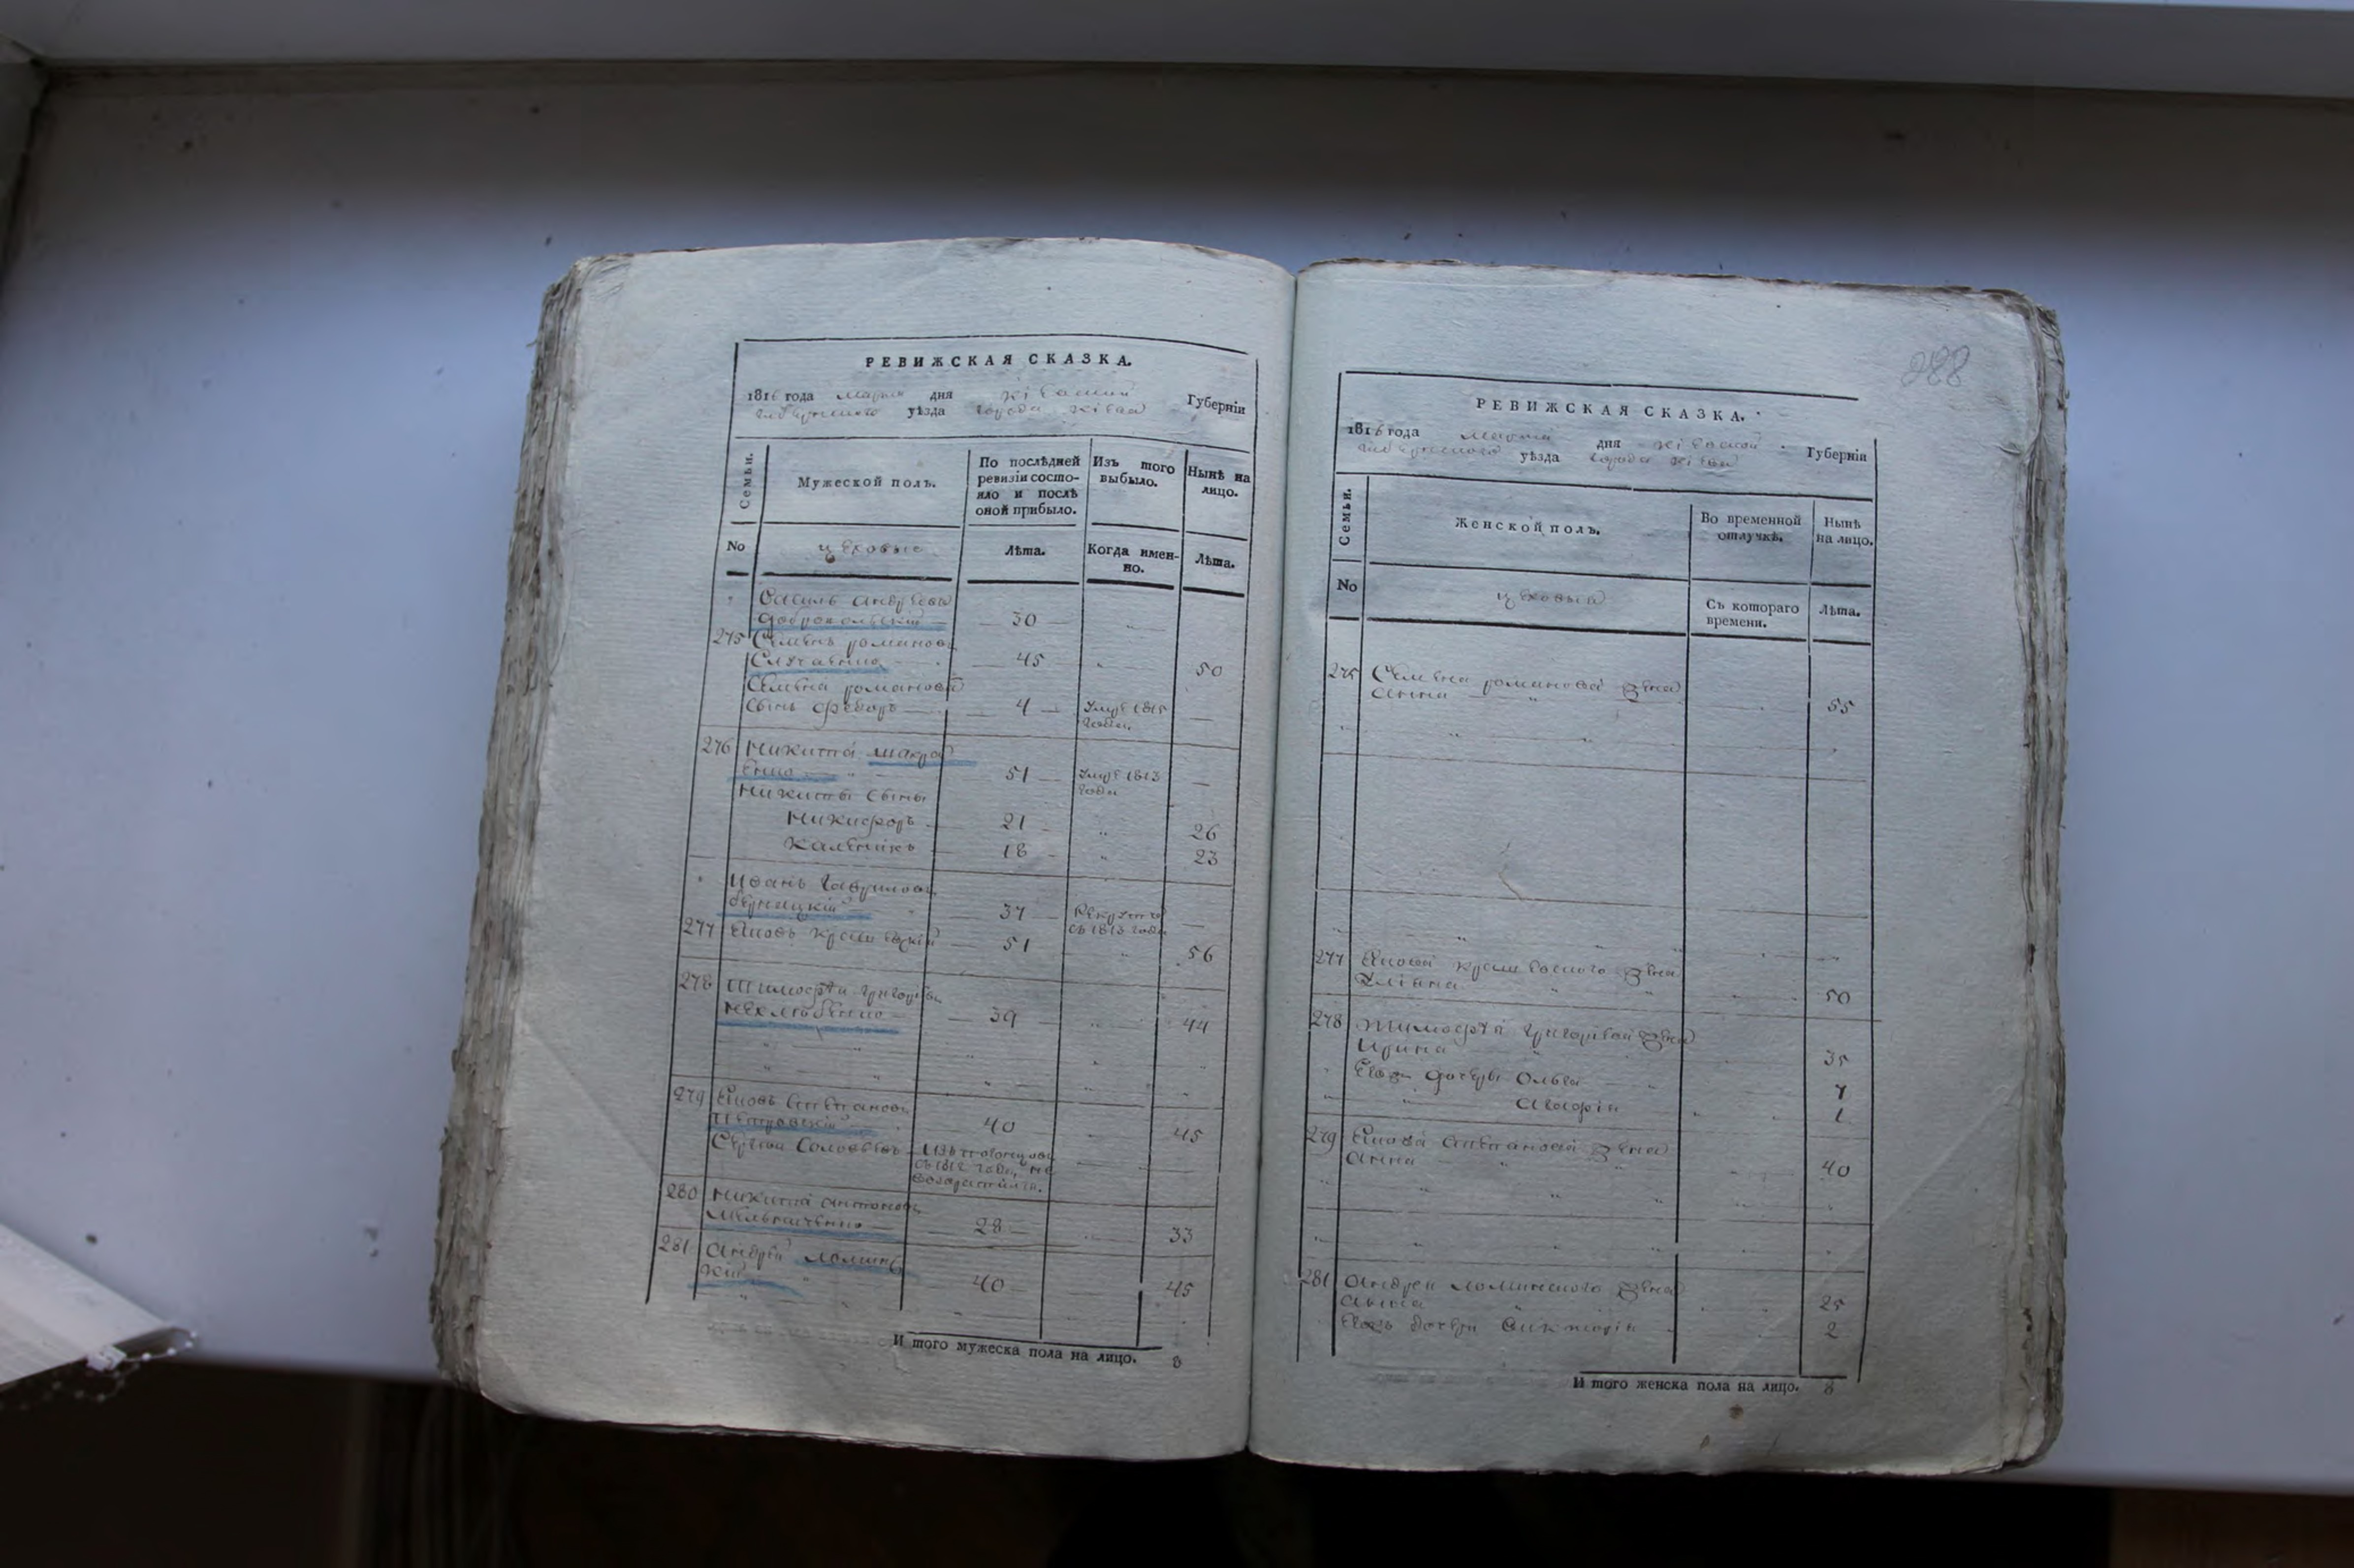 РЕВИЖСКАЯ СКАЗКА.
1816 года марта дня Кіевской Губерніи
уѣзда города Кіева
Семьи.
Мужеской полъ.
По послѣдней ревизіи состояло и послѣ оной прибыло.
Изъ того выбыло.
Нынѣ на лицо.
No
цеховые
Лѣта.
Когда именно.
Лѣта.
Василь Андреевъ
Добровольскій 30
275 Семенъ Романовъ
45 50
Семена Романова
сынъ Федоръ 4 умре 1815 года
276 Никита Макра
енко 51 умре 1813 года
Никиты сыны
Никифоръ 21 26
Каленикъ 18 23
Иванъ Гавриловъ
37 съ 1813 года
277 Яковъ 51 56
278 Тимофей Григорьевъ
Нехлюбенко 39 44
279 Яковъ Степановъ
Петровскій 40 45
Сергей Соловьевъ
съ 1812 года не
280 Никита Антоновъ
Мельниченко 28 33
281 Андрей Ломинс
кій 40 45
И того мужеска пола на лицо. 8
288
РЕВИЖСКАЯ СКАЗКА.
1816 года марта дня Кіевской Губерніи
уѣзда города Кіева
Семьи.
Женской полъ.
Во временной отлучкѣ.
Нынѣ на лицо.
No
цеховые
Съ котораго времени.
Лѣта.
275 Семена Романова жена
Анна 55
277 Якова жена
Уліяна 50
278 Тимофея Григорьева жена
Ирина 35
Его дочери Ольга 7
1
279 Якова Степанова жена
Анна 40
281 Андрея Ломинского жена
25
Ихъ дочь Виктория 2
И того женска пола на лицо. 8